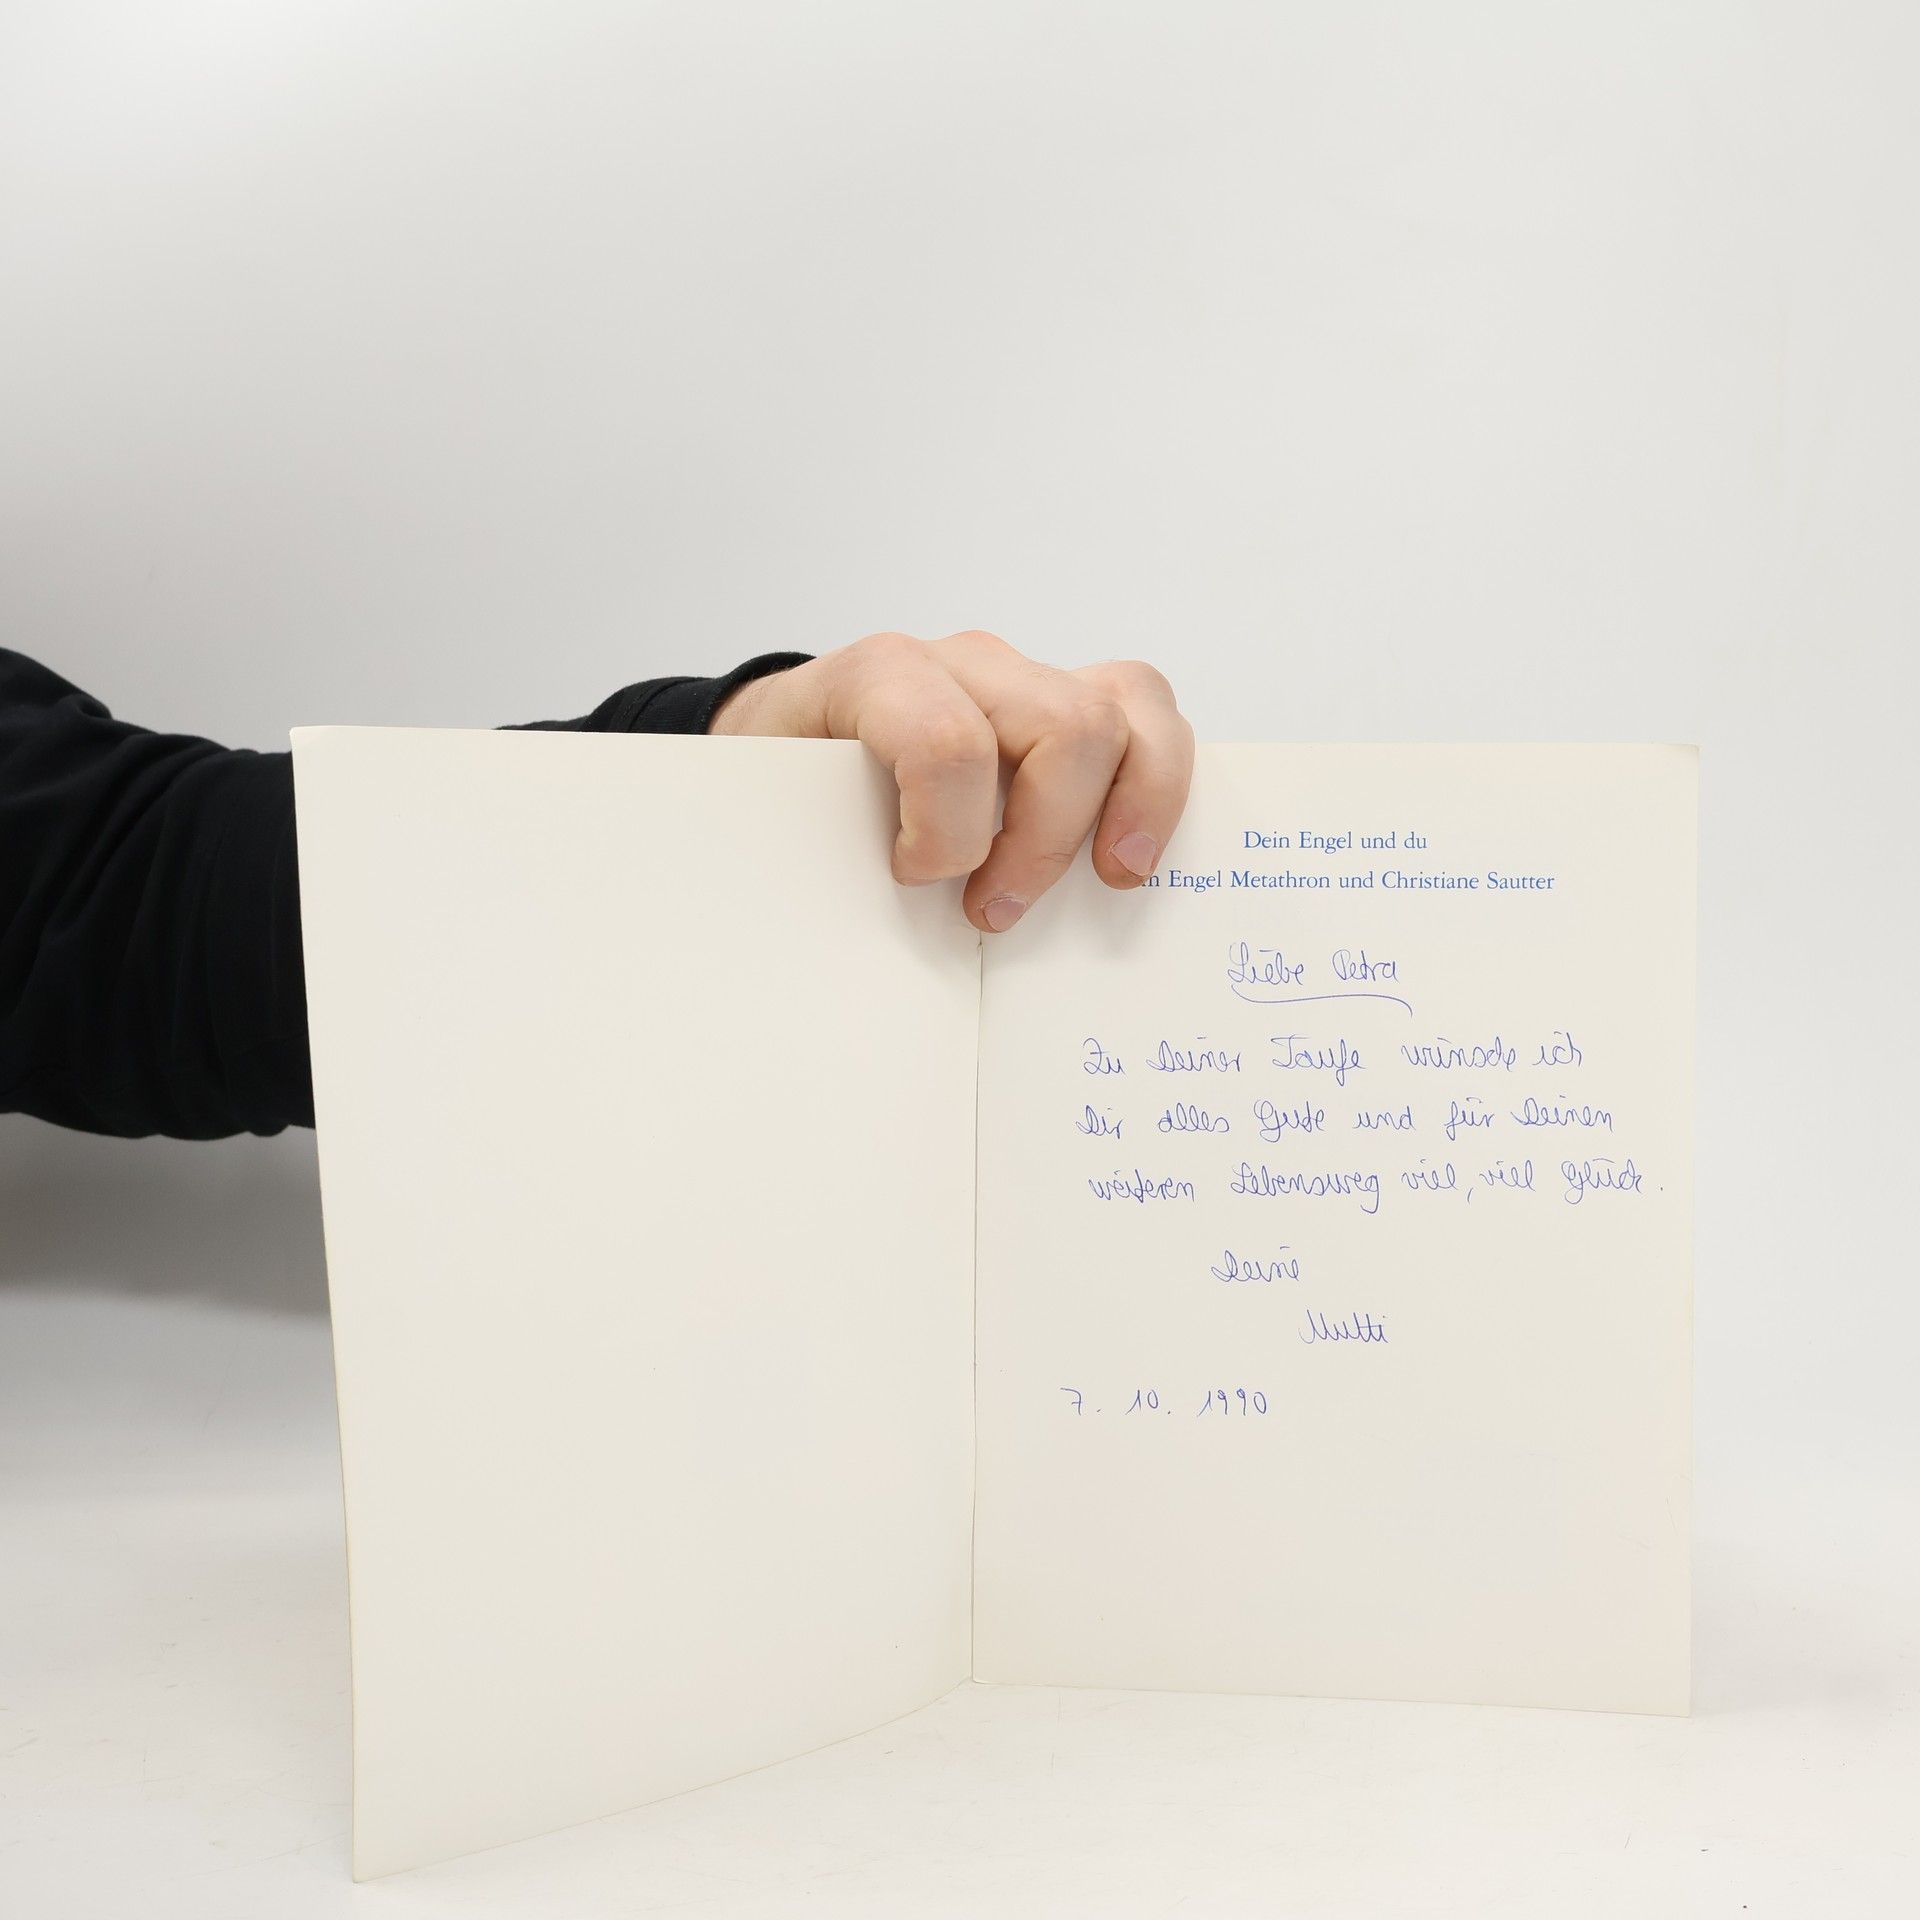 Dein Engel und du
Engel Metathron und Christiane Sautter
Liebe Petra
Zu Deiner Taufe wünsche ich
Dir alles Gute und für Deinen
weiteren Lebensweg viel, viel Glück.
Deine
Mutti
7. 10. 1990